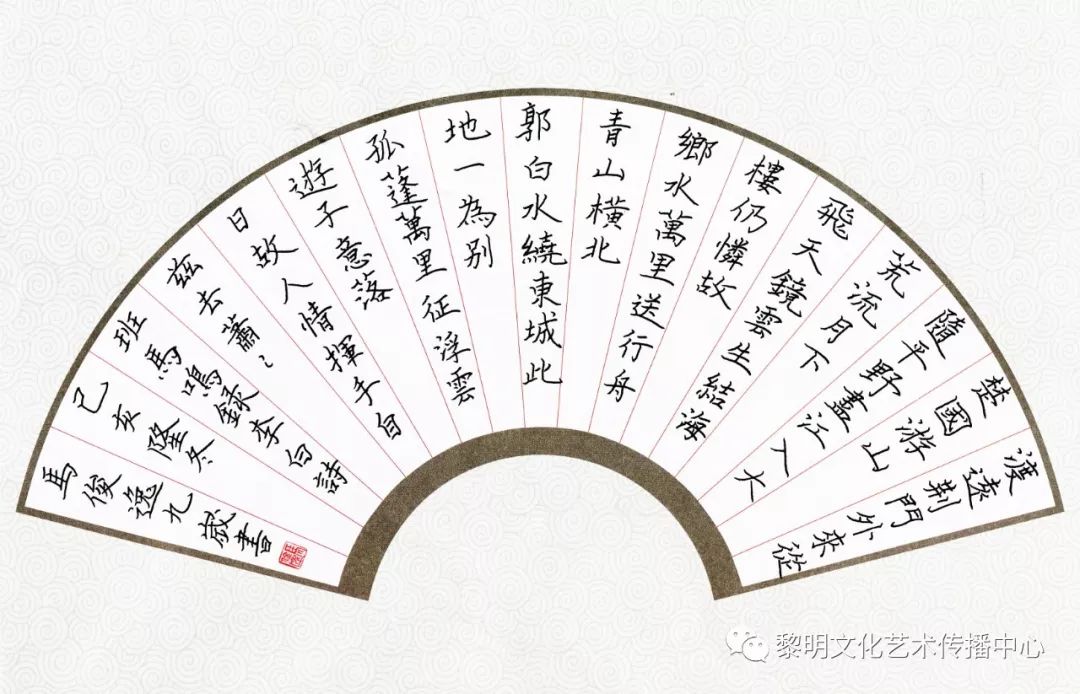 渡遠荆門外來從
楚國游山
隨平野盡江入大
荒流月下
飛天鏡雲生結海
樓仍憐故
鄉水萬里送行舟
青山橫北
郭白水繞東城此
地一為别
孤蓬萬里征浮雲
遊子意落
日故人情揮手自
兹去蕭〻
班馬鳴録李白詩
己亥隆冬
馬俊逸九歲書
黎明文化艺术传播中心